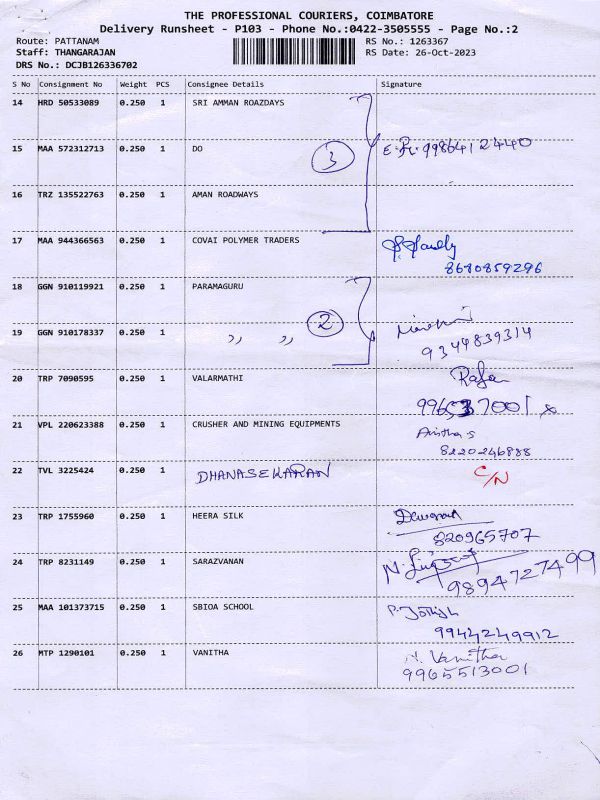 THE PROFESSIONAL COURIERS, COIMBATORE
Delivery Runsheet - P103 - Phone No.:0422-3505555 - Page No.:2
Route: PATTANAM RS No.: 1263367
Staff: THANGARAJAN RS Date: 26-Oct-2023
DRS No.: DCJB126336702
S No Consignment No Weight PCS Consignee Details Signature
14 HRD 50533089 0.250 1 SRI AMMAN ROAZDAYS
15 MAA 572312713 0.250 1 DO 3 9986412440
16 TRZ 135522763 0.250 1 AMAN ROADWAYS
17 MAA 944366563 0.250 1 COVAI POLYMER TRADERS
8680859296
18 GGN 910119921 0.250 1 PARAMAGURU
19 GGN 910178337 0.250 1 ,, ,, 2
9344839314
20 TRP 7090595 0.250 1 VALARMATHI
21 VPL 220623388 0.250 1 CRUSHER AND MINING EQUIPMENTS
8220246888
22 TVL 3225424 0.250 1 DHANASEKARAN C/N
23 TRP 1755960 0.250 1 HEERA SILK
820965707
24 TRP 8231149 0.250 1 SARAZVANAN
9894727499
25 MAA 101373715 0.250 1 SBIOA SCHOOL
9944249912
26 MTP 1290101 0.250 1 VANITHA N. Vanitha
9965513001